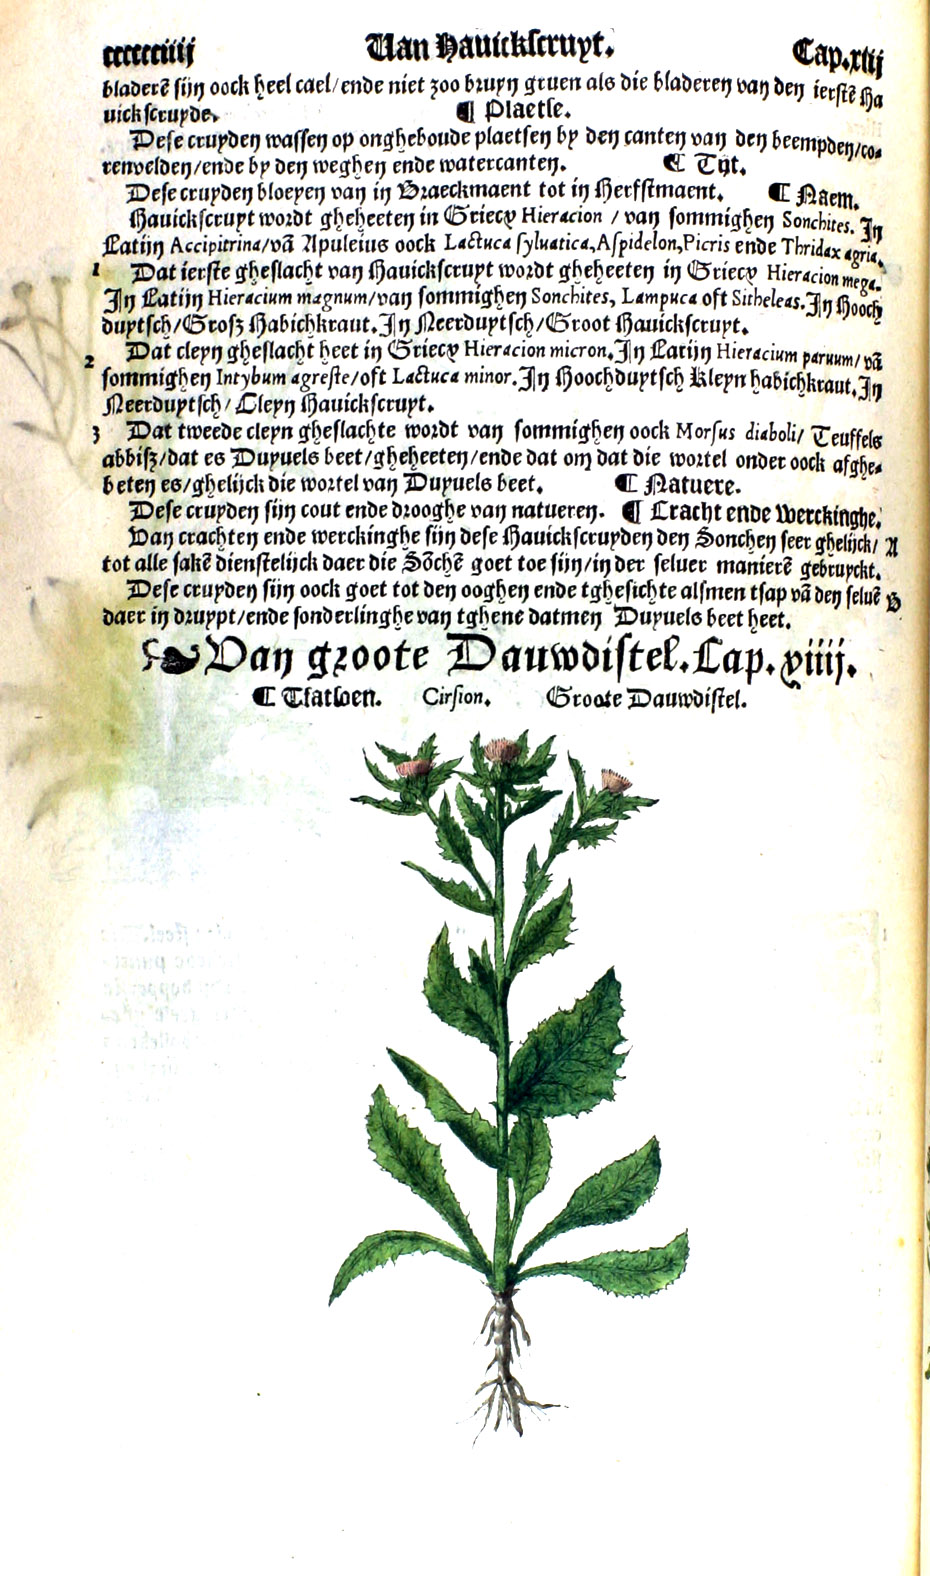 cccccciiij Van Hauickscruyt. Cap.xlij
bladerē sijn oock heel cael/ende niet zoo bruyn gruen als die bladeren van den ierstē Ha
uickscruyde. ¶ Plaetse.
Dese cruyden wassen op ongheboude plaetsen by den canten van den beempden/co⸗
renvelden/ende by den weghen ende watercanten. ¶ Tijt.
Dese cruyden bloeyen van in Braeckmaent tot in Herfstmaent. ¶ Naem.
Hauickscruyt wordt gheheeten in Griecx Hieracion / van sommighen Sonchites. In
Latijn Accipitrina/vā Apuleius oock Lactuca syluatica,Aspidelon,Picris ende Thridax agria.
1 Dat ierste gheslacht van Hauickscruyt wordt gheheeten in Griecx Hieracion mega.
In Latijn Hieracium magnum/van sommighen Sonchites, Lampuca oft Sitheleas.In Hooch
duytsch/Grosz Habichkraut.In Neerduytsch/Groot Hauickscruyt.
2 Dat cleyn gheslacht heet in Griecx Hieracion micron.In Latijn Hieracium paruum/vā
sommighen Intybum agreste/oft Lactuca minor.In Hoochduytsch Kleyn habichkraut.In
Neerduytsch/ Cleyn Hauickscruyt.
3 Dat tweede cleyn gheslachte wordt van sommighen oock Morsus diaboli/ Teuffels
abbisz/dat es Duyuels beet/gheheeten/ende dat om dat die wortel onder oock afghe⸗
beten es/ghelijck die wortel van Duyuels beet. ¶ Natuere.
Dese cruyden sijn cout ende drooghe van natueren. ¶ Cracht ende Werckinghe.
Van crachten ende werckinghe sijn dese Hauickscruyden den Sonchen seer ghelijck/ A
tot alle sakē dienstelijck daer die Sōchē goet toe sijn/in der seluer manierē gebruyckt.
Dese cruyden sijn oock goet tot den ooghen ende tghesichte alsmen tsap vā den seluē B
daer in druypt/ende sonderlinghe van tghene datmen Duyuels beet heet.
Van groote Dauwdistel.Cap.xiiij.
¶ Tfatsoen. Cirsion. Groote Dauwdistel.